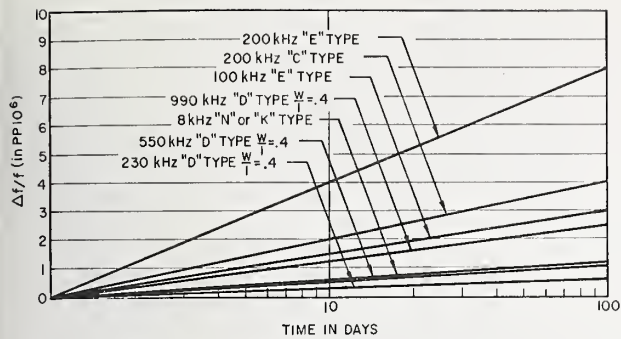 10
9
8
7
6
5
4
3
2
1
0
Δf/f (in PP10⁶)
200 kHz "E" TYPE
200 kHz "C" TYPE
100 kHz "E" TYPE
990 kHz "D" TYPE W/l = .4
8 kHz "N" or "K" TYPE
550 kHz "D" TYPE W/l = .4
230 kHz "D" TYPE W/l = .4
1
10
100
TIME IN DAYS